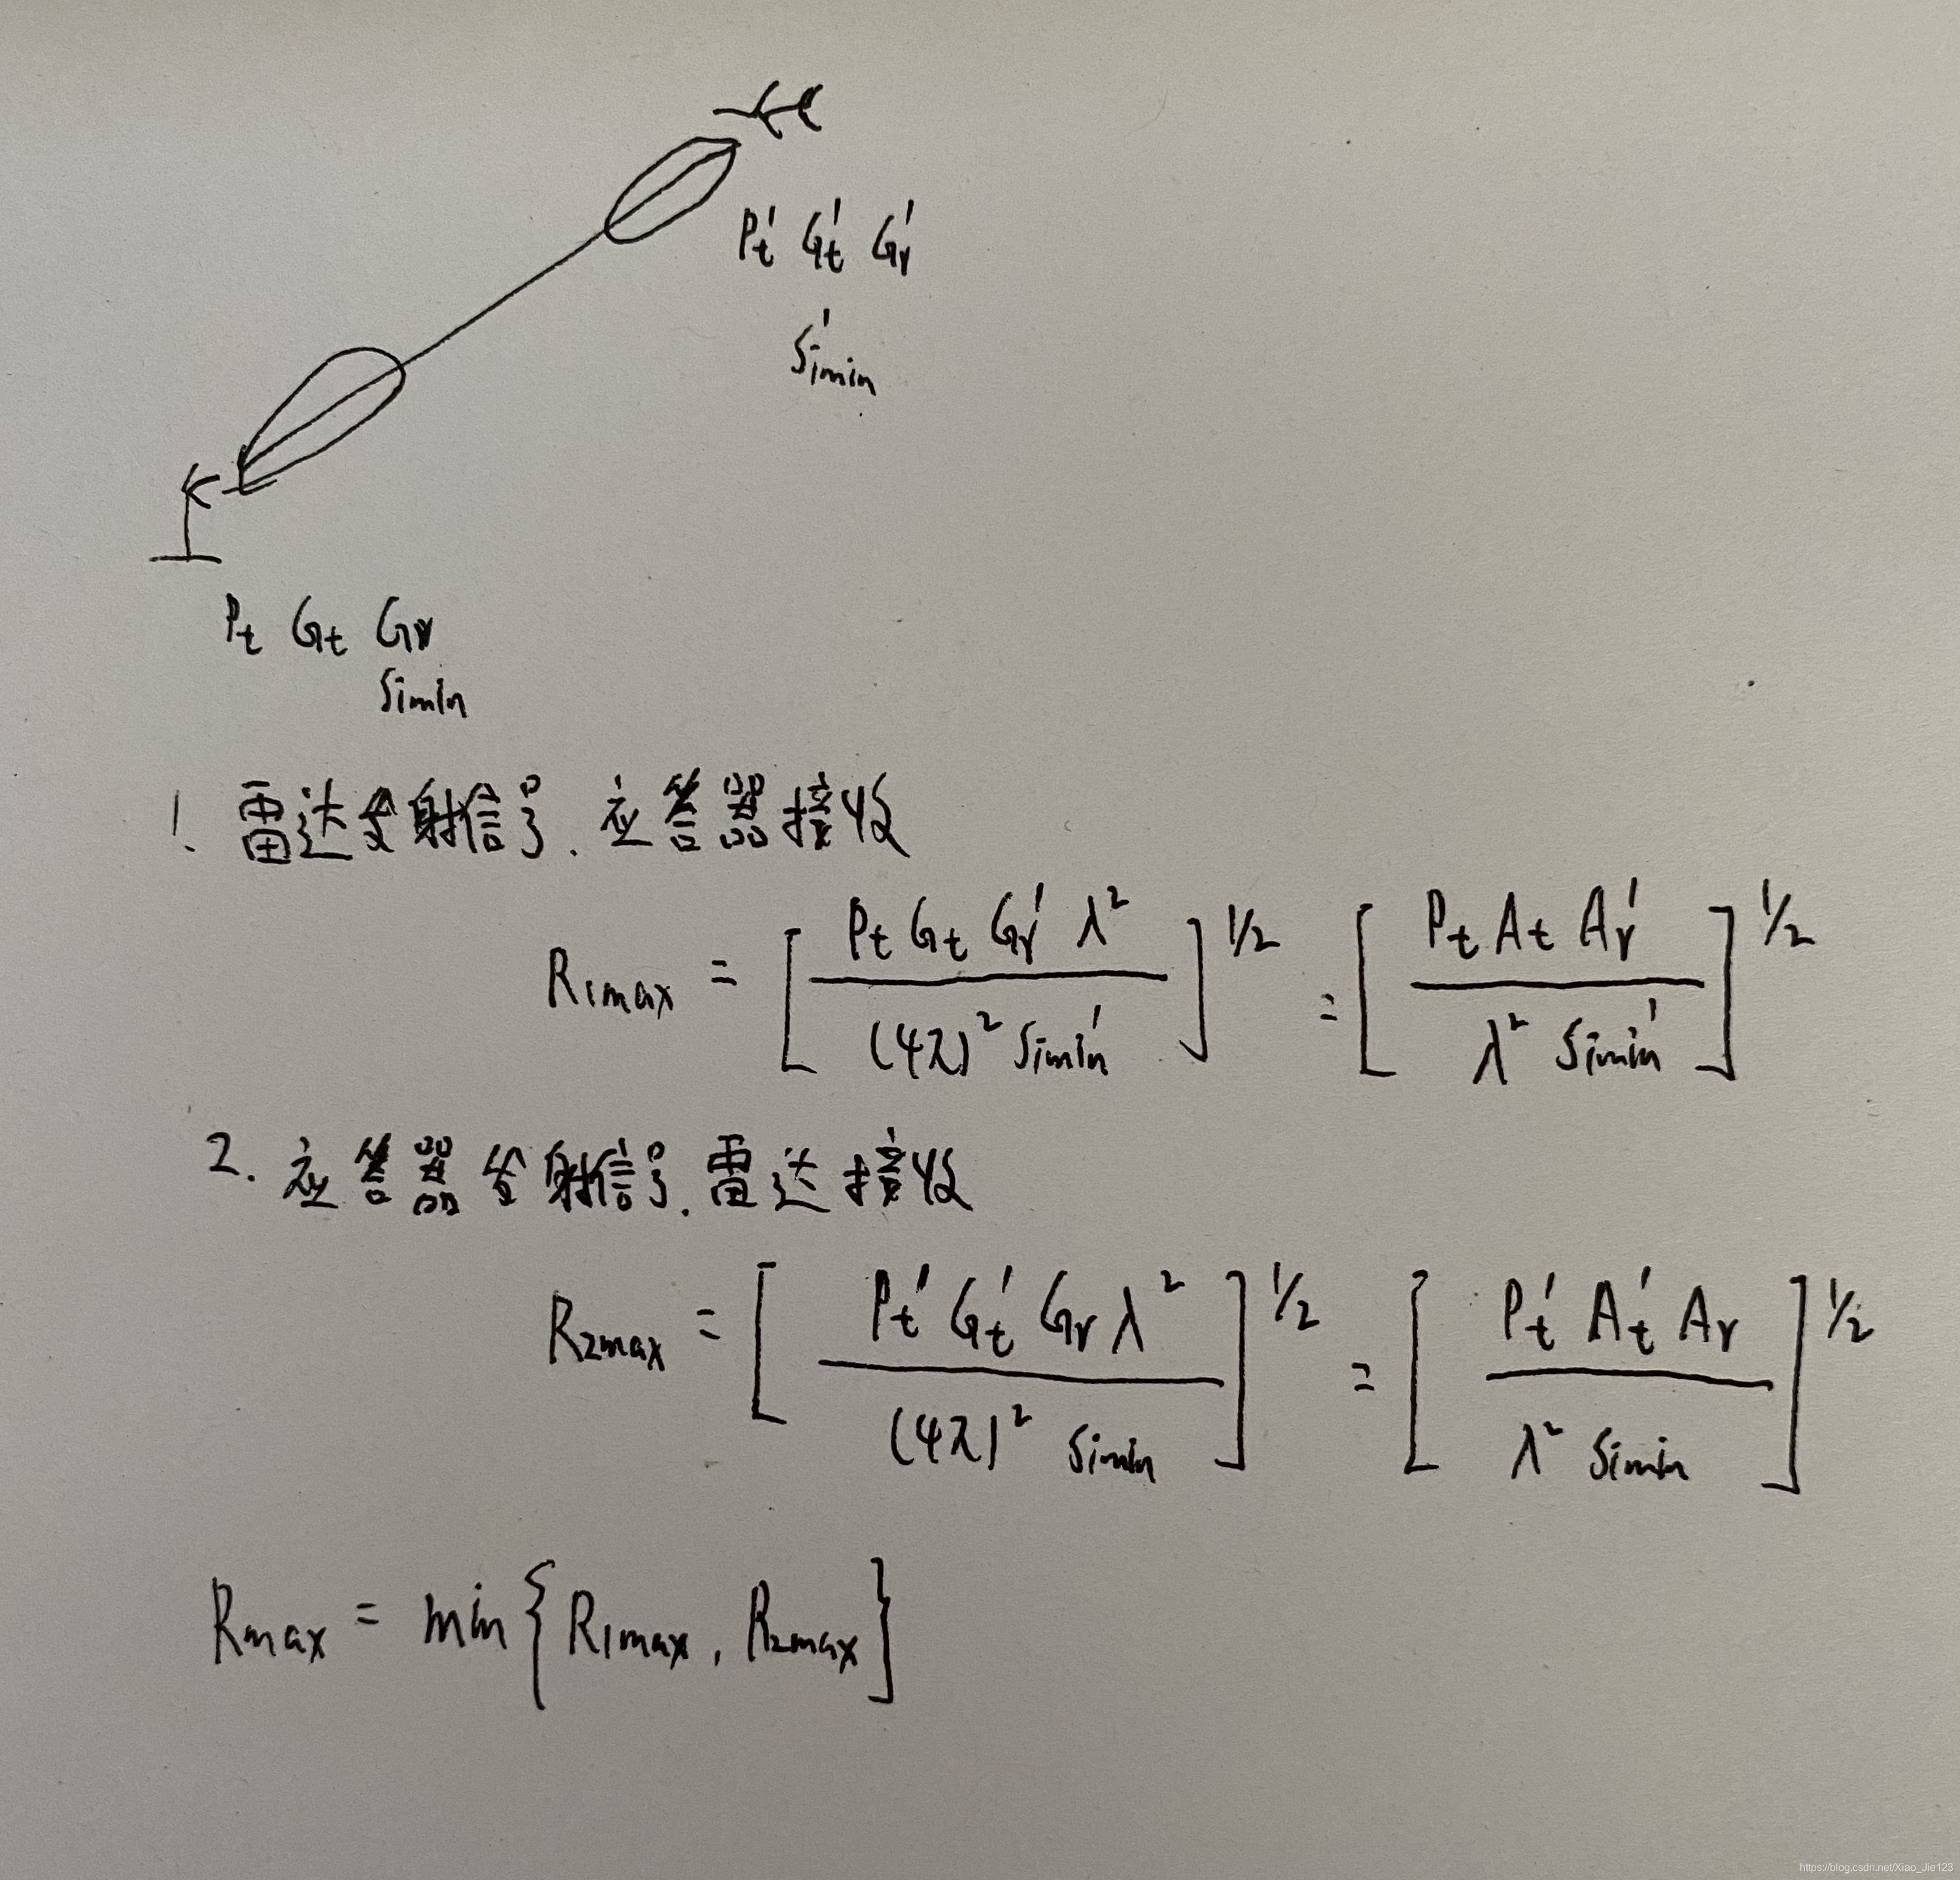 Pt' Gt' Gr'
S'imin
Pt Gt Gr
Simin
1. 雷达发射信号. 应答器接收
R1max = [ Pt Gt Gr' λ² / (4π)² Simin' ]^1/2 = [ Pt At Ar' / λ² Simin' ]^1/2
2. 应答器发射信号. 雷达接收
R2max = [ Pt' Gt' Gr λ² / (4π)² Simin ]^1/2 = [ Pt' At' Ar / λ² Simin ]^1/2
Rmax = min { R1max , R2max ]
https://blog.csdn.net/Xiao_Jie123